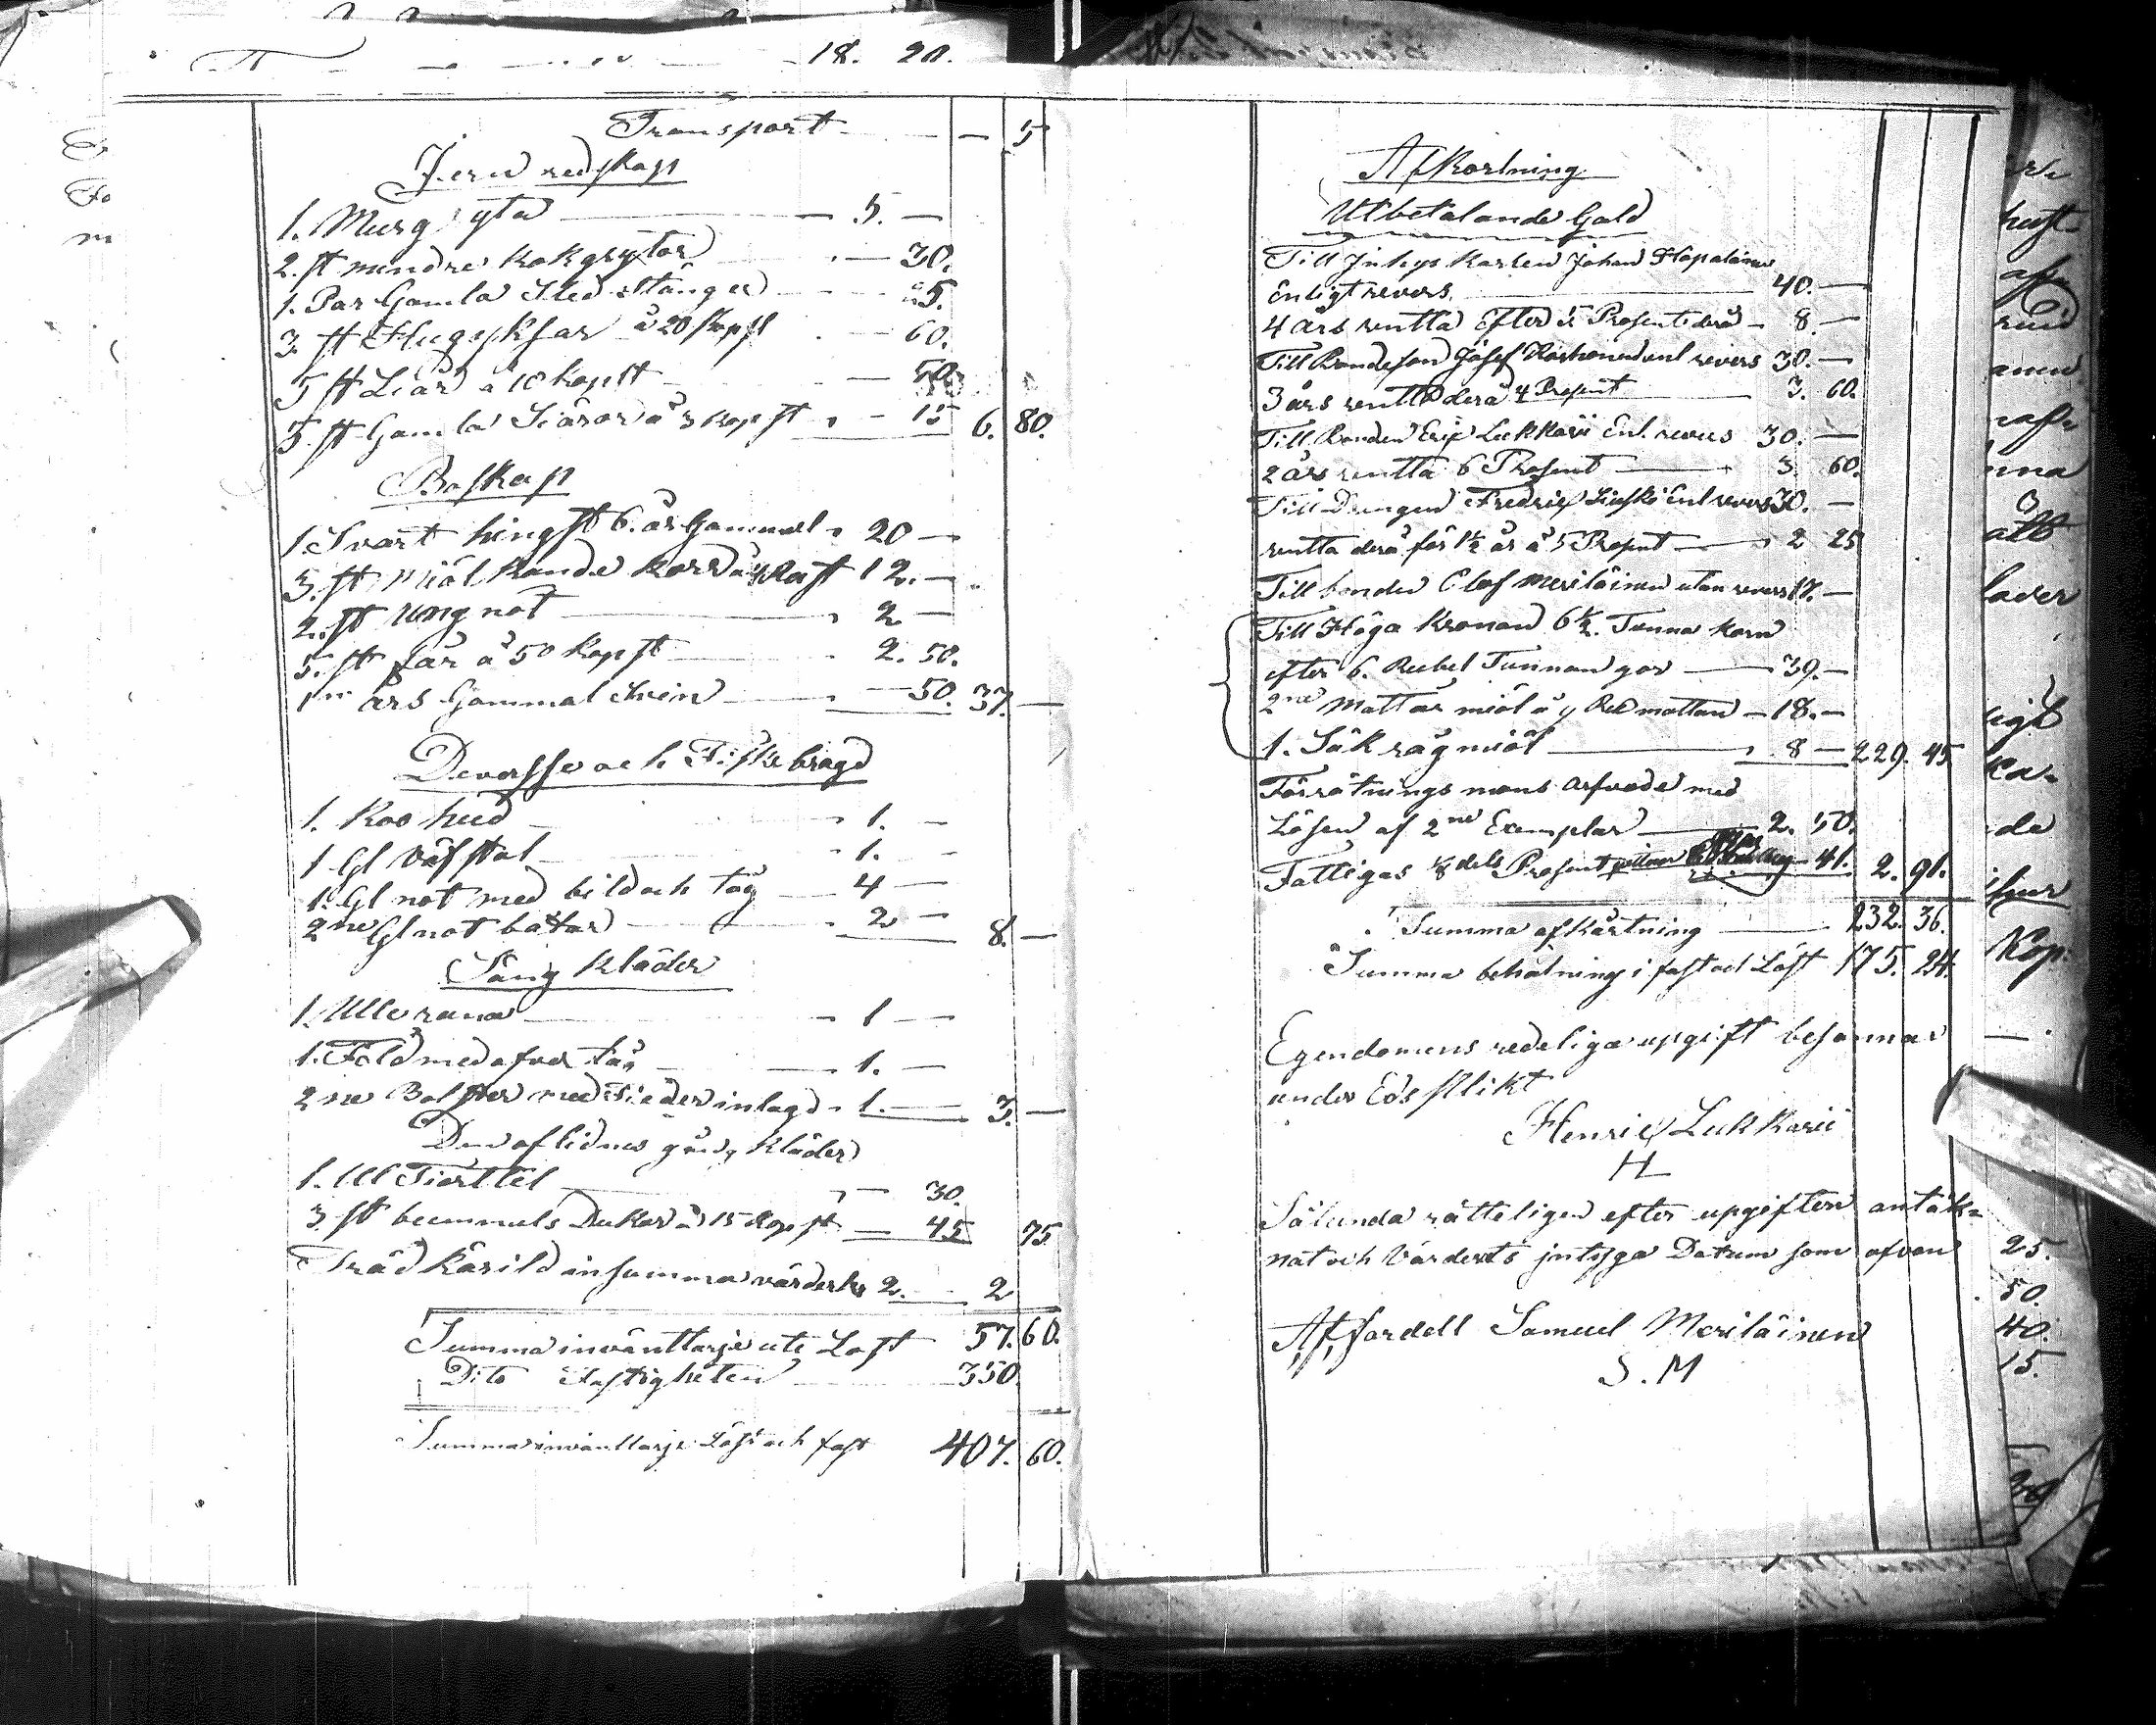 18. 20.
Transport — 5
Jern redskap
1. Murgryta — 5. —
2. st mindre kokgrytor — 30.
1. Par Gamla Sled stänger — 25.
3. st Flugyksar a 20 kop st — 60.
5 st Liar a 10 kop st — 50.
5. st Gamla Skäror a 3 kop st — 15 6. 80.
Boskap
1 Svart hingst 6. år Gammal 20 —
3. st Miölkande kor a 4 Ra st 12. —
2. st Ung nöt — 2 —
5. st får a 50 kop st — 2. 50.
1 års Gammal Svin — 50. 37. —
Deversse och Fiskebragd
1. Koo hud — 1. —
1 Gl Väfstol — 1. —
1. Gl not med bild och tåg — 4 —
2ne Gl not båtar — 2 — 8. —
Säng kläder
1. Ulle rana — 1 —
1. Fäld med öfver tåg — 1. —
2ne Bolster med Fieder inlagd 1. — 3. —
Den aflidnes gång kläder
1. Ull Tiorttel — 30.
3. st bummuls Dukar a 15 kop st — 45 75
Träd kärild in summa värderts 2. — 2
Summa inventtarje ute Löst 57. 60.
Dito Fastigheten — 350.
Summa inventtarje Löst och fast 407. 60.
Afkortning
Utbetalande Gäld
Till Inhys karlen Johan Hapalainen
Enligt revers — 40. —
4 års rentta Efter 5 Prosent derå — 8. —
Till Bondeson Josef Karhonen enl revers 30. —
3 års rentta derå 4 Prosent — 3. 60.
Till Bonden Eric Lukkari Enl. revers 30. —
2 års rentta 6 Prosent — 3 60.
Till Drengen Fredric Enl revers 30. —
rentta derå för 1½ år a 5 Prosent — 2 25
Till bonden Olof Meriläinen utan revers 17. —
Till Höga Kronan 6½. Tunna korn
efter 6. Rubel Tunnan gör — 39. —
2ne Mattar miöl a 9 Rub mattan — 18. —
1. Säk rågmiöl — 8 — 229. 45
Förrätnings mans arfvode med
Lösen af 2ne Exemplar — 2. 50.
Fattigas ⅛ dels Prosent — 41. 2. 91.
Summa afkårtning — 232. 36.
Summa behålning i fast och Löst 175. 24.
Egendomens redeliga upgift besannar
under Eds plikt
Henric Lukkarii
H L
Sålunda rätteligen efter upgiften anteck-
nat och Värderts intyga Datum som ofvan
Samuel Meriläinen
S. M
25.
50.
40.
15.